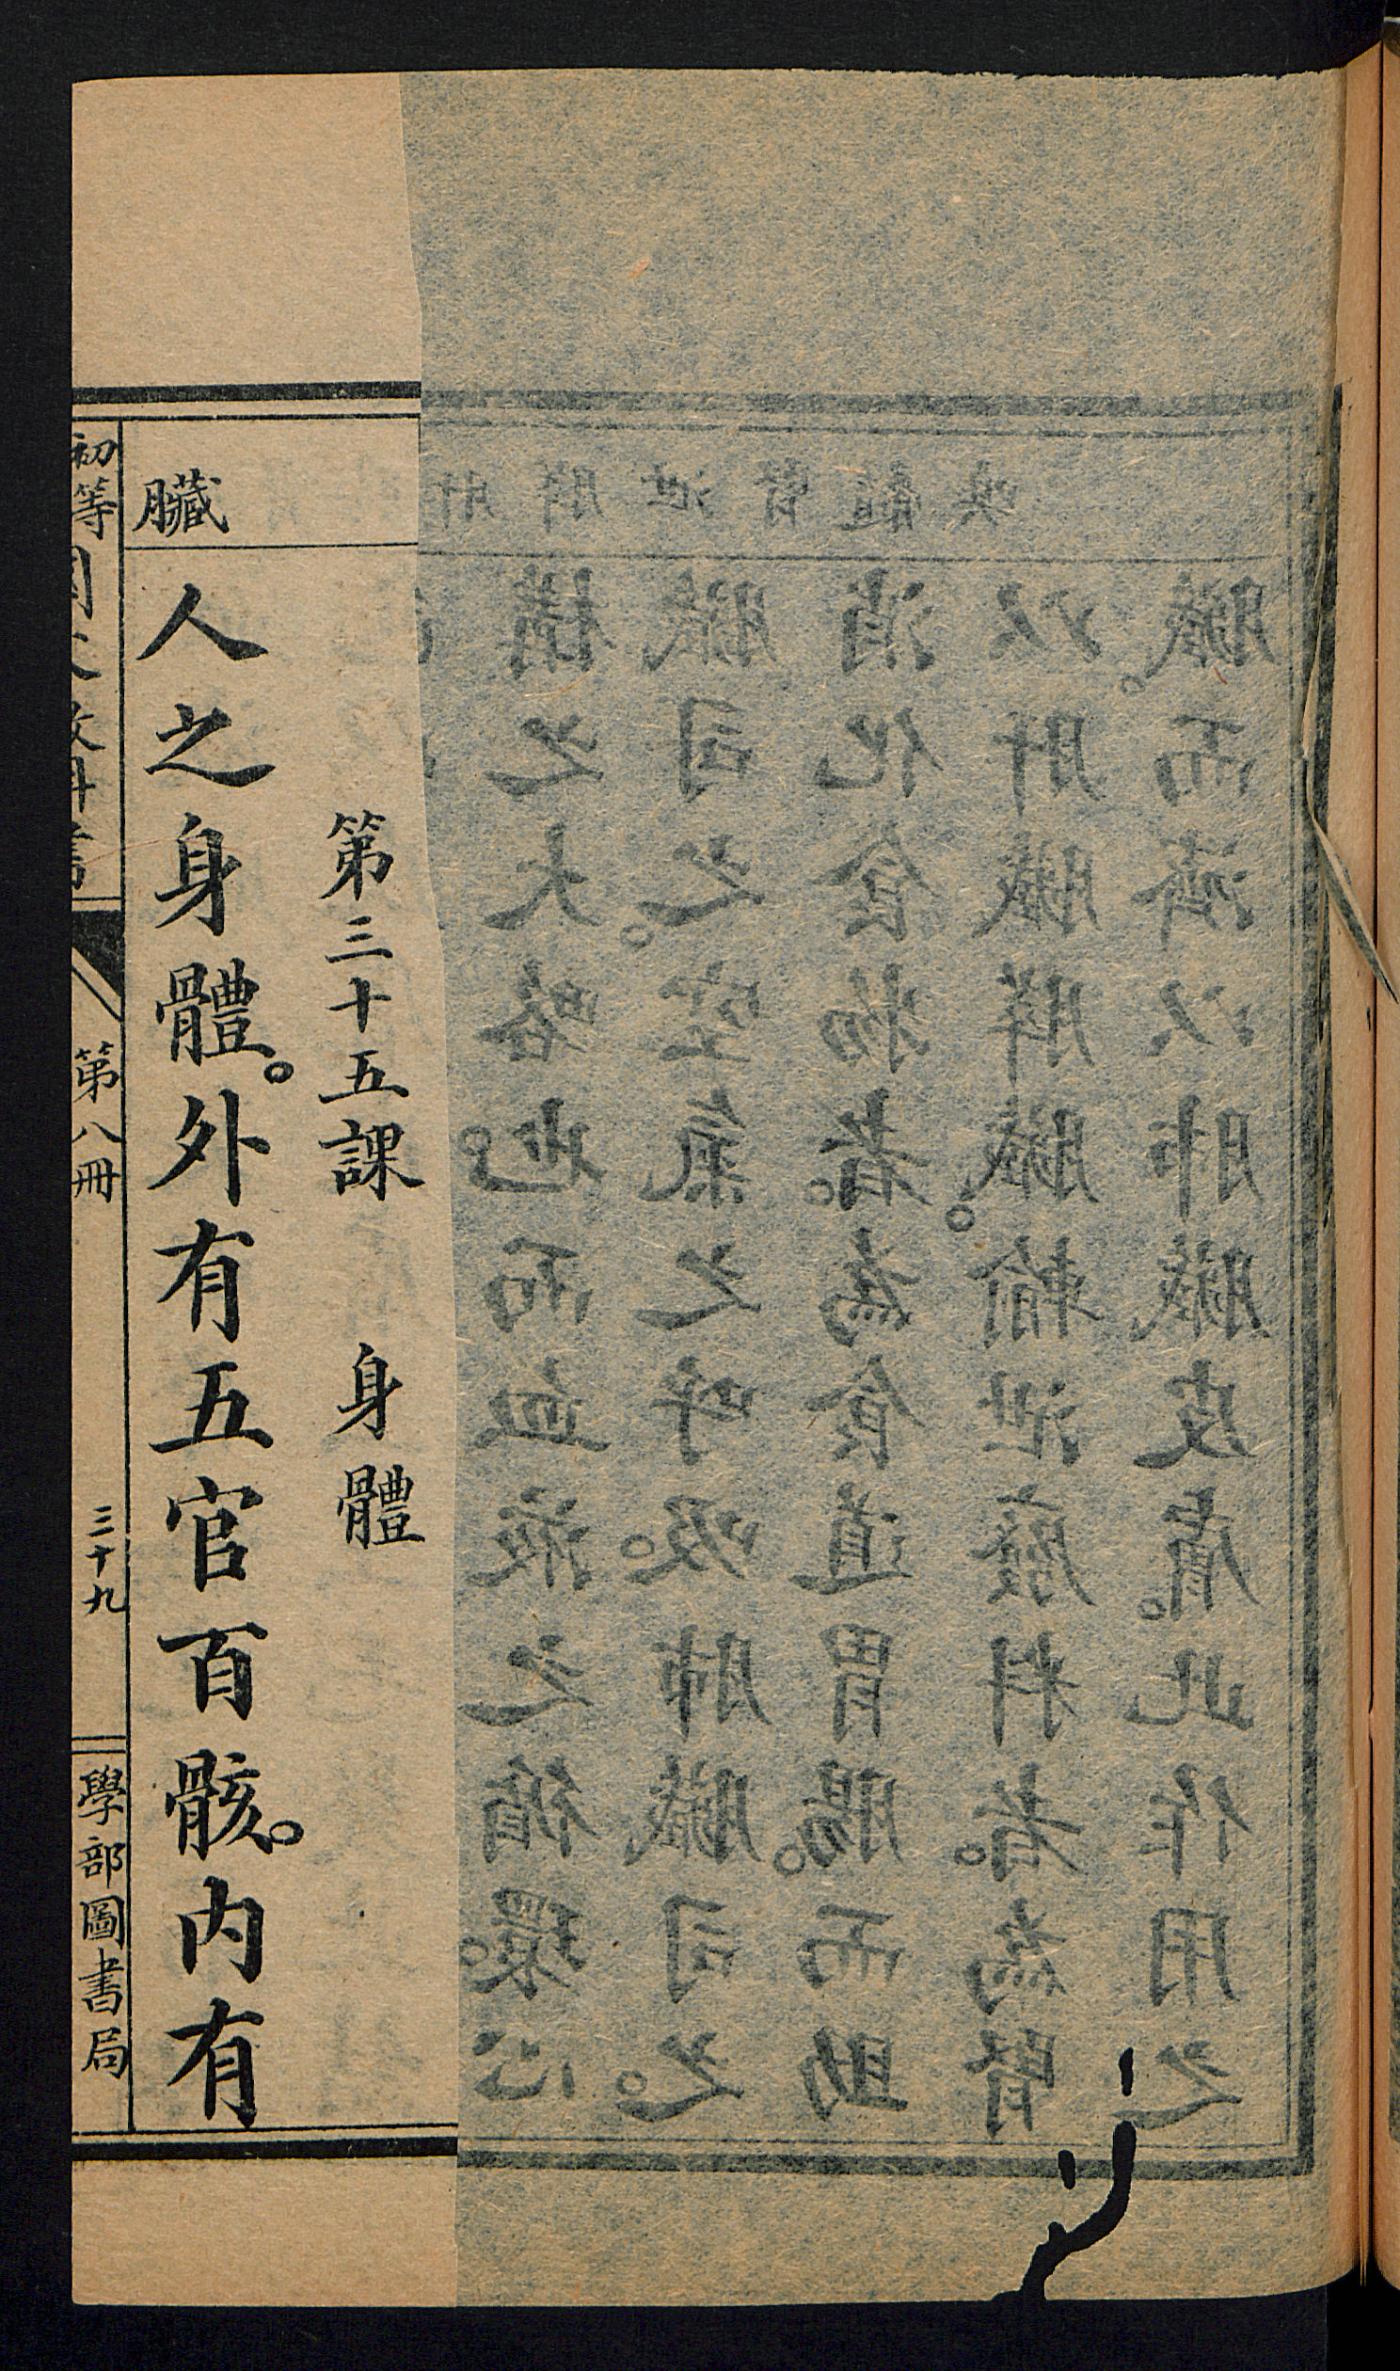 第三十五課　身體
臟
人之身體。外有五官百骸。內有
初等國文教科書　第八冊　三十九　學部圖書局
肝　脺　泄　腎　髓
構之大略也。而血液之循環。心
臟司之。空氣之呼吸。肺臟司之。
消化食物者。為食道胃腸。而助
以肝臟脺臟。輸泄廢料者。為腎
臟。而濟以肺臟皮膚。此作用之